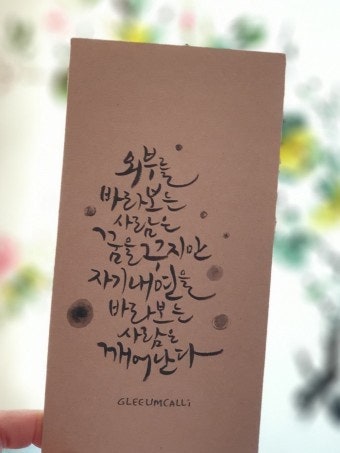 외부를
바라보는
사람은
꿈을 꾸지만
자기내면을
바라보는
사람은
깨어난다
GLEEUMCALLi